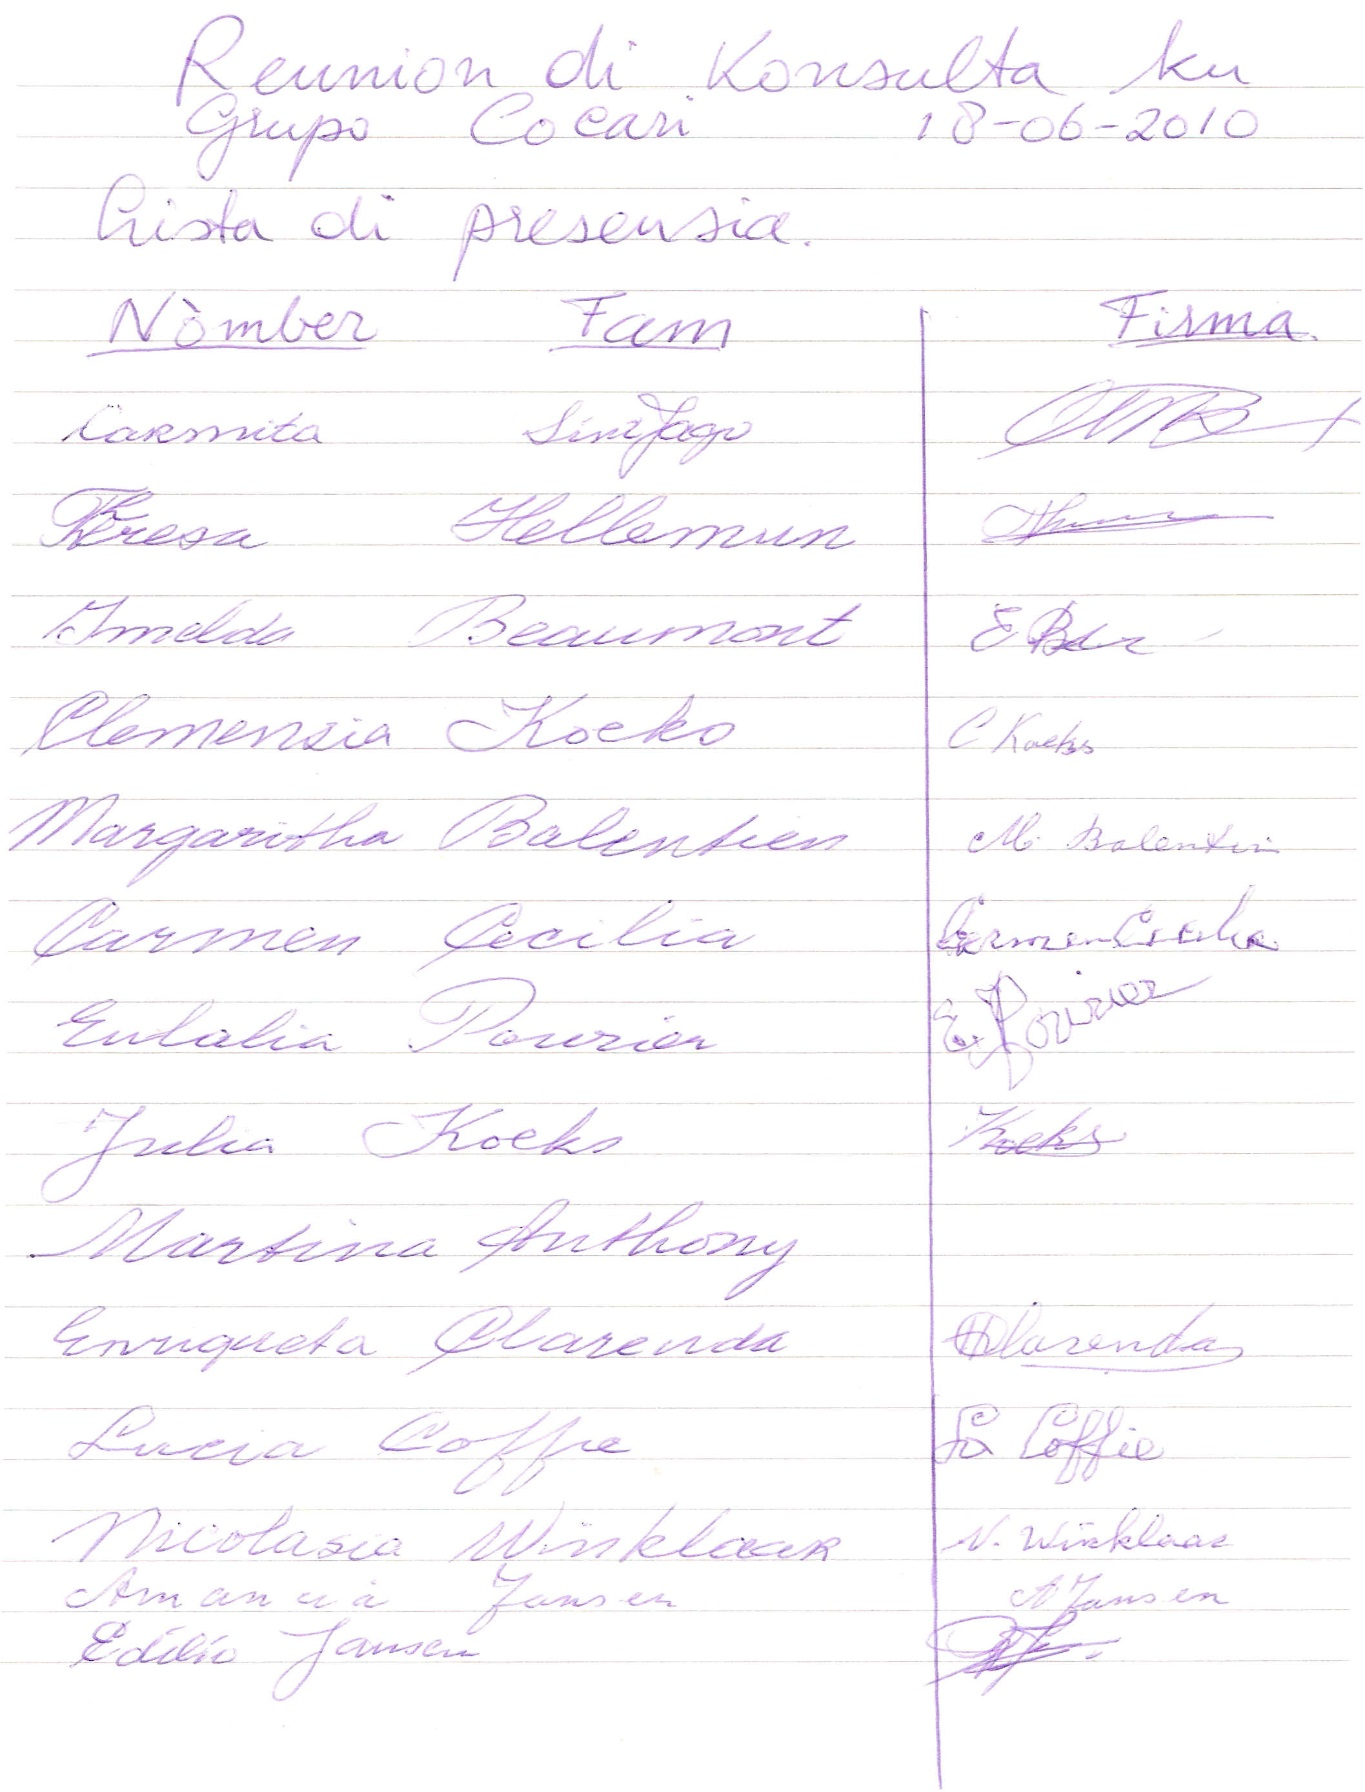 Reunion di Konsulta ku
Grupo Cocari 18-06-2010
Lista di presensia.
Nòmber Fam Firma.
Carmita SintJago
Theresa Hellemun
Imelda Beaumont
Clemensia Koeks C Koeks
Margaritha Balentien M. Balentin
Carmen Cecilia Carmen Cecilia
Eulalia Pourier E. Pourier
Julia Koeks Koeks
Martina Anthony
Enriqueta Clarenda Clarenda
Lucia Coffie Coffie
Nicolasia Winklaar N. Winklaar
Amancia Jansen A Jansen
Edilio Jansen